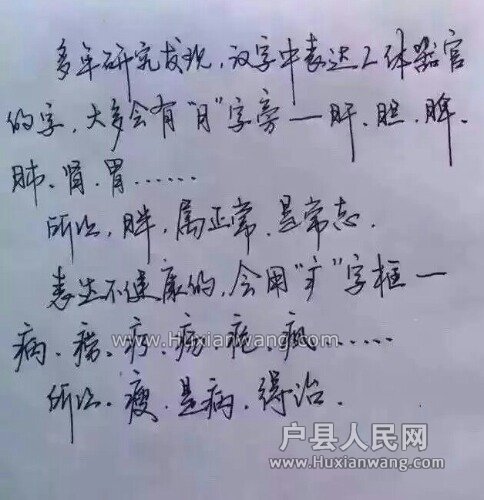 多年研究发现，汉字中表达人体器官
的字，大多会有"月"字旁—肝、胆、脾、
肺、肾、胃……
所以，胖，属正常，是常态．
表达不健康的，会用"疒"字框—
www.Huxianwang.com
病、痨、疗、疡、疤、疯……
所以，瘦，是病，得治．
户县人民网
www.Huxianwang.com